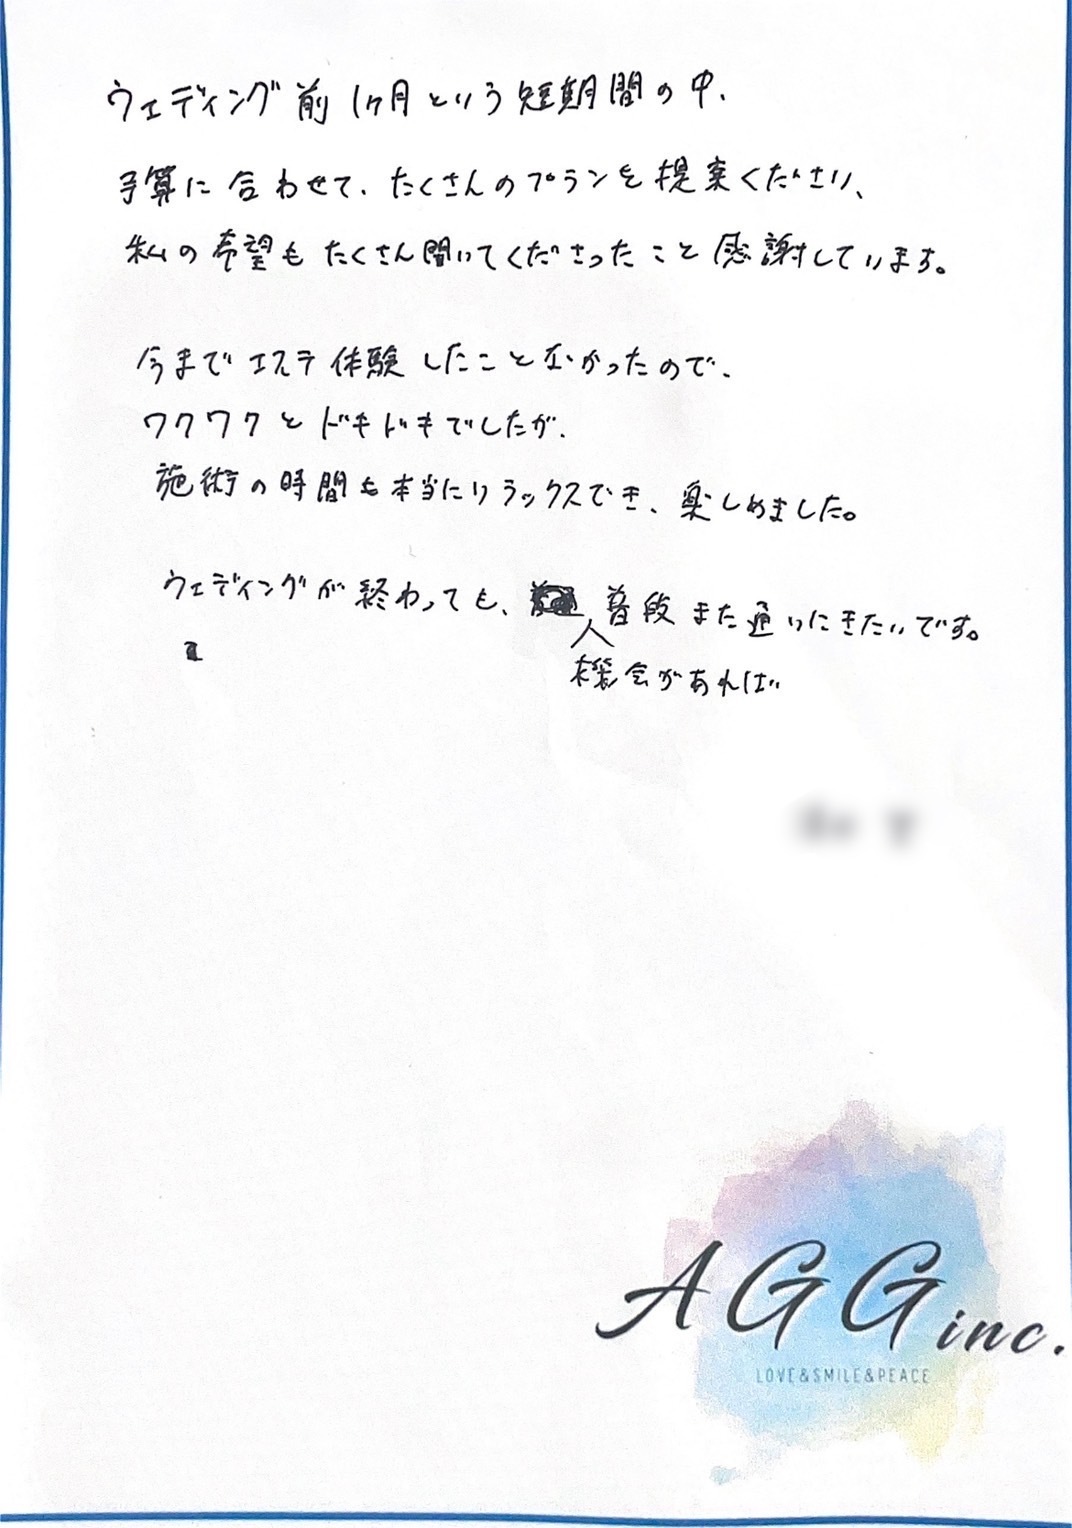 ウェディング前1ヶ月という短期間の中、
予算に合わせて、たくさんのプランを提案くださり、
私の希望もたくさん聞いてくださったこと感謝しています。
今までエステ体験したことなかったので、
ワクワクとドキドキでしたが、
施術の時間も本当にリラックスでき、楽しめました。
ウェディングが終わっても、普段また通いにきたいです。
機会があれば
AGG inc.
LOVE&SMILE&PEACE